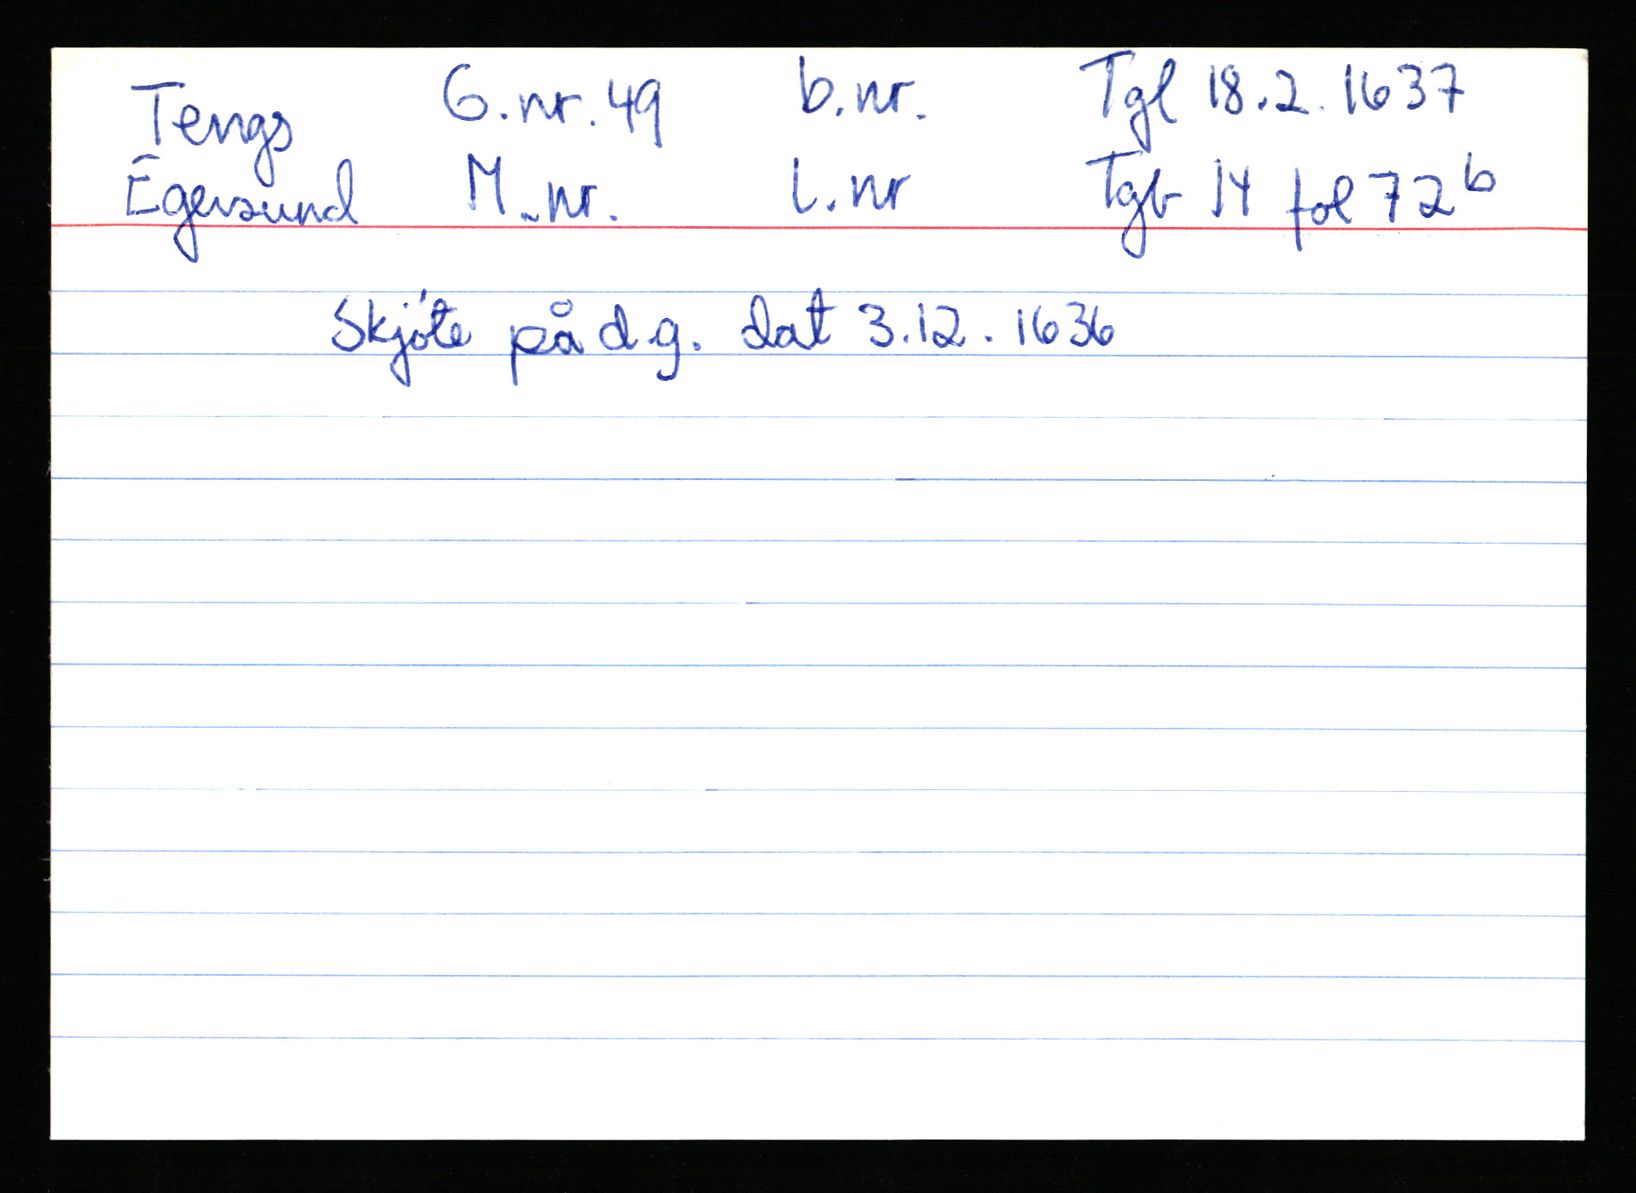 Tengs G.nr. 49 b.nr. Tgl 18.2.1637
Egersund M.nr. l.nr Tgb 14 fol 72b
Skjöte på d.g. dat 3.12.1636